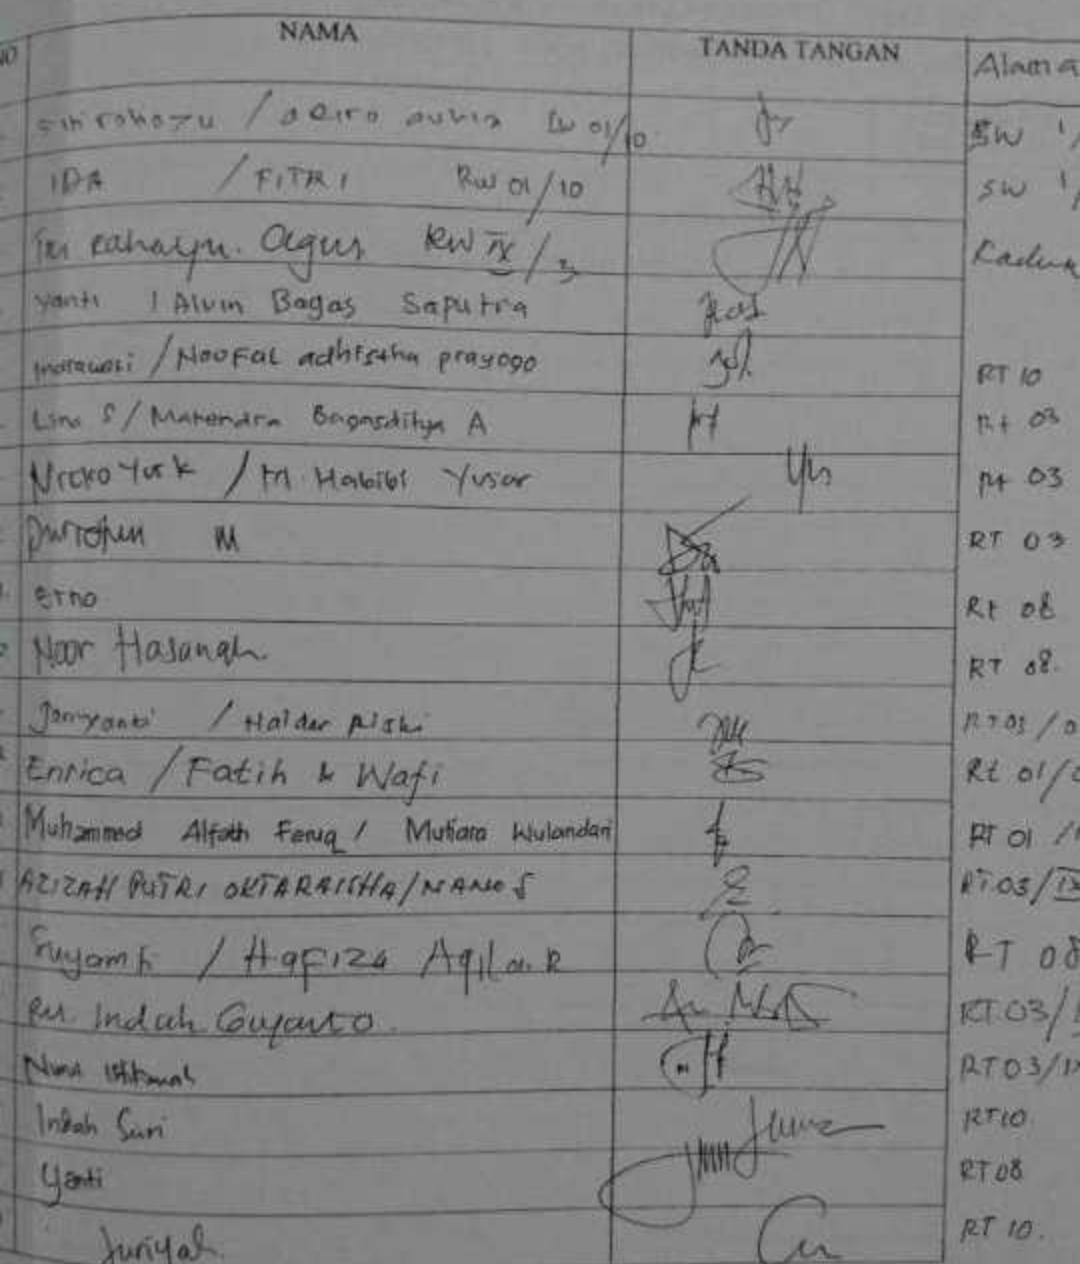 NO NAMA TANDA TANGAN Alama
RW 01/10 SW 1/
IDA / FITRI RW 01/10 SW 1/
Sri Rahayu. Agus RW IX / 3
Yanti / Alvin Bagas Saputra
/ Noofal adhistha prayogo RT 10
Lina S / Mahendra Bagasditya A Rt 03
/ M. Habibi Yusar Rt 03
M RT 03
Erno Rt 08
Noor Hasanah RT 08.
/ Haidar Riski RT 03 / 0
Enrica / Fatih & Wafi Rt 01/
Muhammad Alfath Faruq / Mutiara Wulandari RT 01 /
AZIZAH PUTRI OKTARAISHA / NANO S RT 03/IX
Suyamti / Hafiza Aqila R RT 08
Indah Guyanto. RT 03/
Istikomah RT 03/IX
Indah Sari RT 10
Yanti RT 08
Juriyah. RT 10.